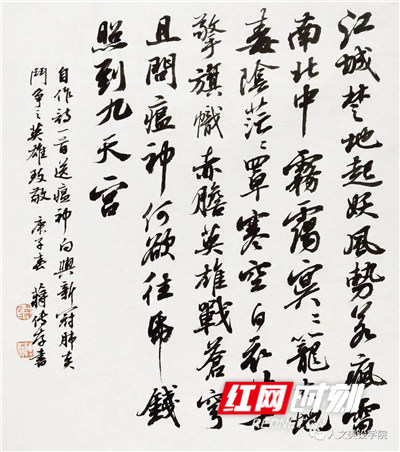 江城楚地起妖風勢若瘋雷
南北中霧靄冥〻籠大地
毒陰茫〻罩寒空白衣
擎旗幟赤膽英雄戰蒼穹
且問瘟神何欲往錢
照到九天宮
自作詩一首送瘟神向與新冠肺炎
鬥爭之英雄致敬 庚子春 蔣書
红网时刻
人文美设学院